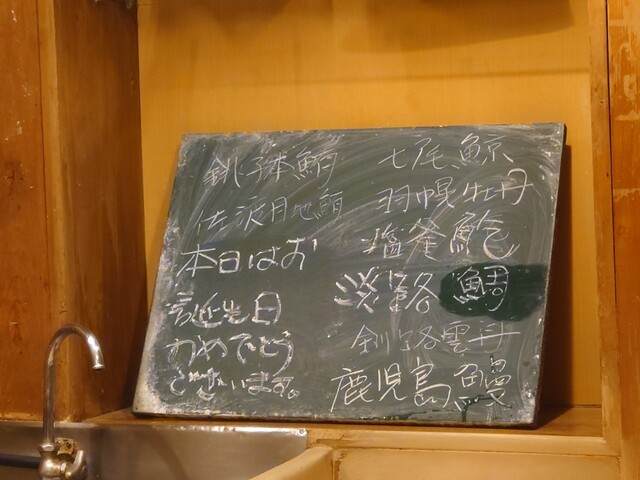 銚子本鮪
鮪
本日はお
誕生日
おめでとう
ございます。
七尾鯨
羽幌牡丹
塩釜鮑
淡路鯛
釧路雲丹
鹿児島鰻